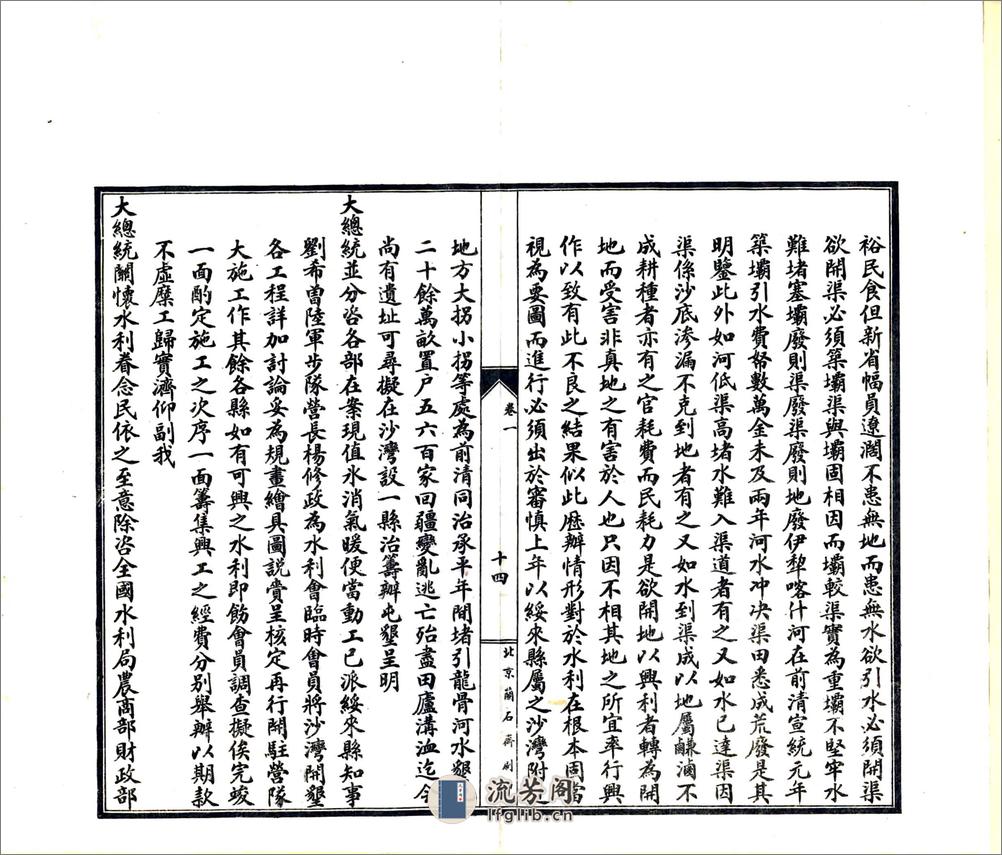 裕民食但新省幅員遼濶不患無地而患無水欲引水必須開渠
欲開渠必須築壩渠與壩固相因而壩較渠實為重壩不堅牢水
難堵塞壩廢則渠廢渠廢則地廢伊犂喀什河在前清宣統元年
築壩引水費帑數萬金未及兩年河水冲决渠田悉成荒廢是其
明鑒此外如河低渠高堵水難入渠道者有之又如水已達渠因
渠係沙底滲漏不克到地者有之又如水到渠成以地屬鹻滷不
成耕種者亦有之官耗費而民耗力是欲開地以興利者轉為開
地而受害非真地之有害於人也只因不相其地之所宜率行興
作以致有此不良之結果似此歷辦情形對於水利在根本固當
視為要圖而進行必須出於審慎上年以綏來縣屬之沙灣附近
卷一
十四
北京蘭石齋刷
地方大拐小拐等處為前清同治承平年間堵引龍骨河水墾地
二十餘萬畝置户五六百家回疆變亂逃亡殆盡田廬溝洫迄今
尚有遺址可尋擬在沙灣設一縣治籌辦屯墾呈明
大總統並分咨各部在案現值水消氣暖便當動工已派綏來縣知事
劉希曾陸軍步隊營長楊修政為水利會臨時會員將沙灣開墾
各工程詳加討論妥為規畫繪具圖説賫呈核定再行開駐營隊
大施工作其餘各縣如有可興之水利即飭會員調查擬俟完竣
一面酌定施工之次序一面籌集興工之經費分別舉辦以期款
不虛糜工歸實濟仰副我
大總統關懷水利眷念民依之至意除咨全國水利局農商部財政部
流芳阁
lfglib.cn